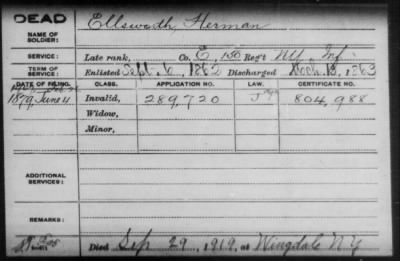 DEAD Ellsworth, Herman
NAME OF SOLDIER:
SERVICE: Late rank, Co. E, 150 Reg't N.Y. Inf.
TERM OF SERVICE: Enlisted Sept. 6, 1862 Discharged 1863
DATE OF FILING. CLASS. APPLICATION NO. LAW. CERTIFICATE NO.
1879, June 4 Invalid, 289,720 804,988
Widow,
Minor,
ADDITIONAL SERVICES:
REMARKS:
Died Sep 29, 1919, at Wingdale N.Y